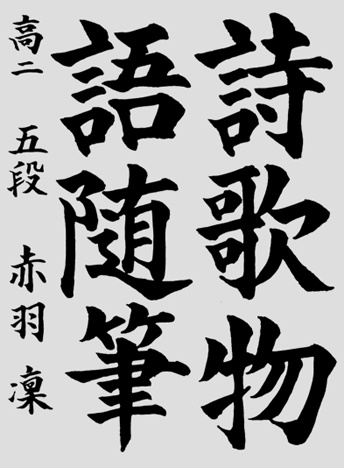 詩歌物
語随筆
高二 五段 赤羽 凜